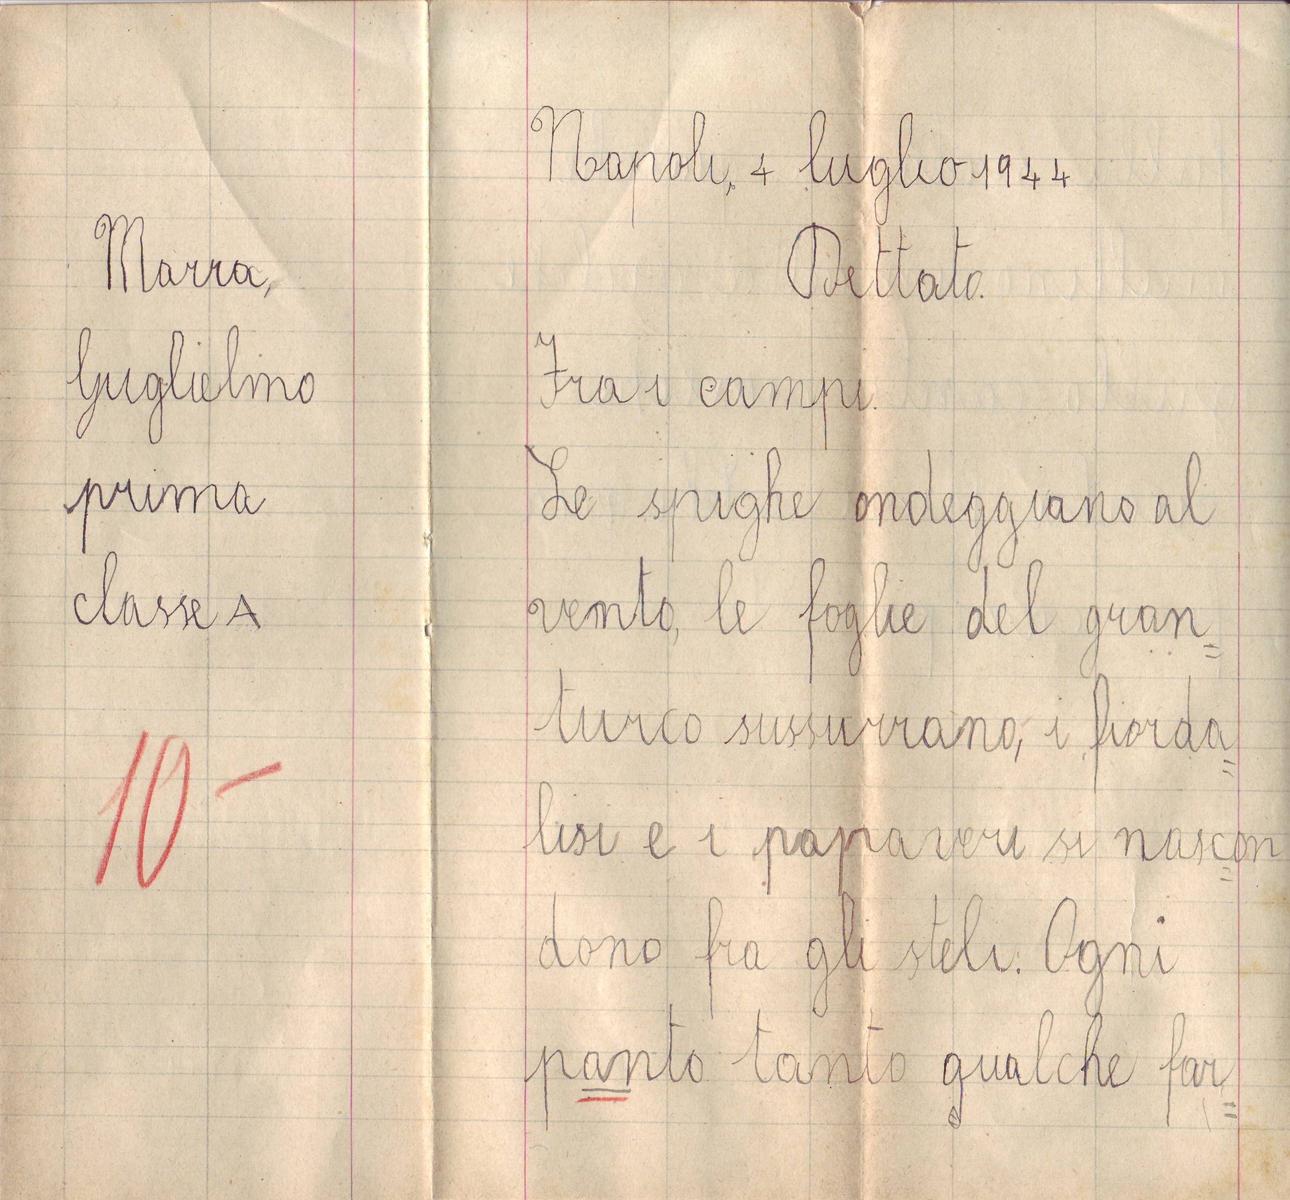 Napoli, 4 luglio 1944
Marra,
Guglielmo
prima
classe A
10-
Dettato.
Fra i campi.
Le spighe ondeggiano al
vento, le foglie del gran=
turco sussurrano, i fiorda=
lisi e i papaveri si nascon=
dono fra gli steli. Ogni
panto tanto qualche far=